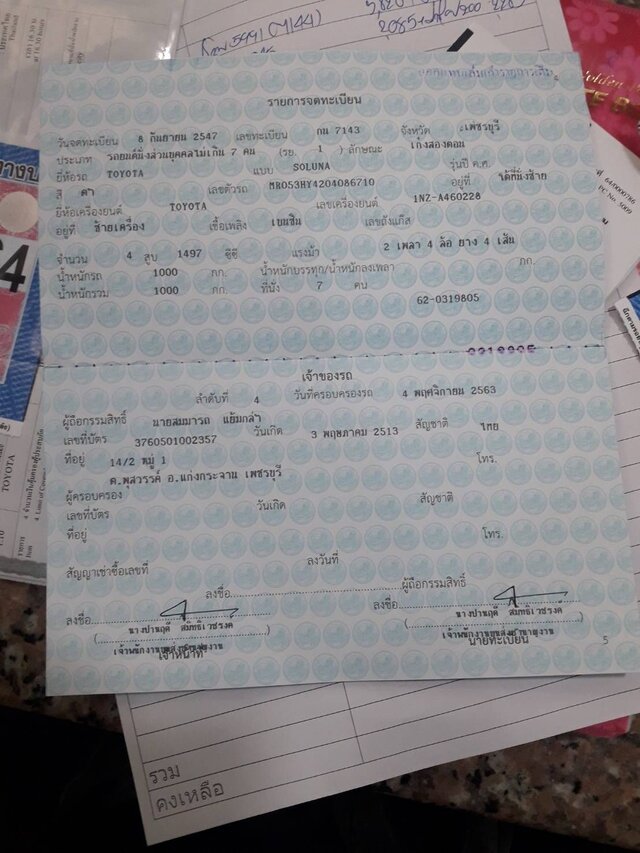 รายการจดทะเบียน
วันจดทะเบียน 8 กันยายน 2547 เลขทะเบียน กน 7143 จังหวัด เพชรบุรี
ประเภท รถยนต์นั่งส่วนบุคคลไม่เกิน 7 คน (รย. 1 ) ลักษณะ เก๋งสองตอน
ยี่ห้อรถ TOYOTA แบบ SOLUNA รุ่นปี ค.ศ.
สี ดำ เลขตัวรถ MR053HY4204086710 อยู่ที่ ใต้ที่นั่งซ้าย
ยี่ห้อเครื่องยนต์ TOYOTA เลขเครื่องยนต์ 1NZ-A460228
อยู่ที่ ซ้ายเครื่อง เชื้อเพลิง เบนซิน เลขถังแก๊ส
จำนวน 4 สูบ 1497 ซีซี แรงม้า 2 เพลา 4 ล้อ ยาง 4 เส้น
น้ำหนักรถ 1000 กก. น้ำหนักบรรทุก/น้ำหนักลงเพลา กก.
น้ำหนักรวม 1000 กก. ที่นั่ง 7 คน
62-0319805
เจ้าของรถ
ลำดับที่ 4 วันที่ครอบครองรถ 4 พฤศจิกายน 2563
ผู้ถือกรรมสิทธิ์ นายสมมารถ แย้มกลีบ
เลขที่บัตร 3760501002357 วันเกิด 3 พฤษภาคม 2513 สัญชาติ ไทย
ที่อยู่ 14/2 หมู่ 1 โทร.
ต.พุสวรรค์ อ.แก่งกระจาน เพชรบุรี
ผู้ครอบครอง
เลขที่บัตร วันเกิด สัญชาติ
ที่อยู่ โทร.
สัญญาเช่าซื้อเลขที่ ลงวันที่
ลงชื่อ ผู้ถือกรรมสิทธิ์
ลงชื่อ ลงชื่อ
เจ้าหน้าที่ นายทะเบียน
5
รวม
คงเหลือ